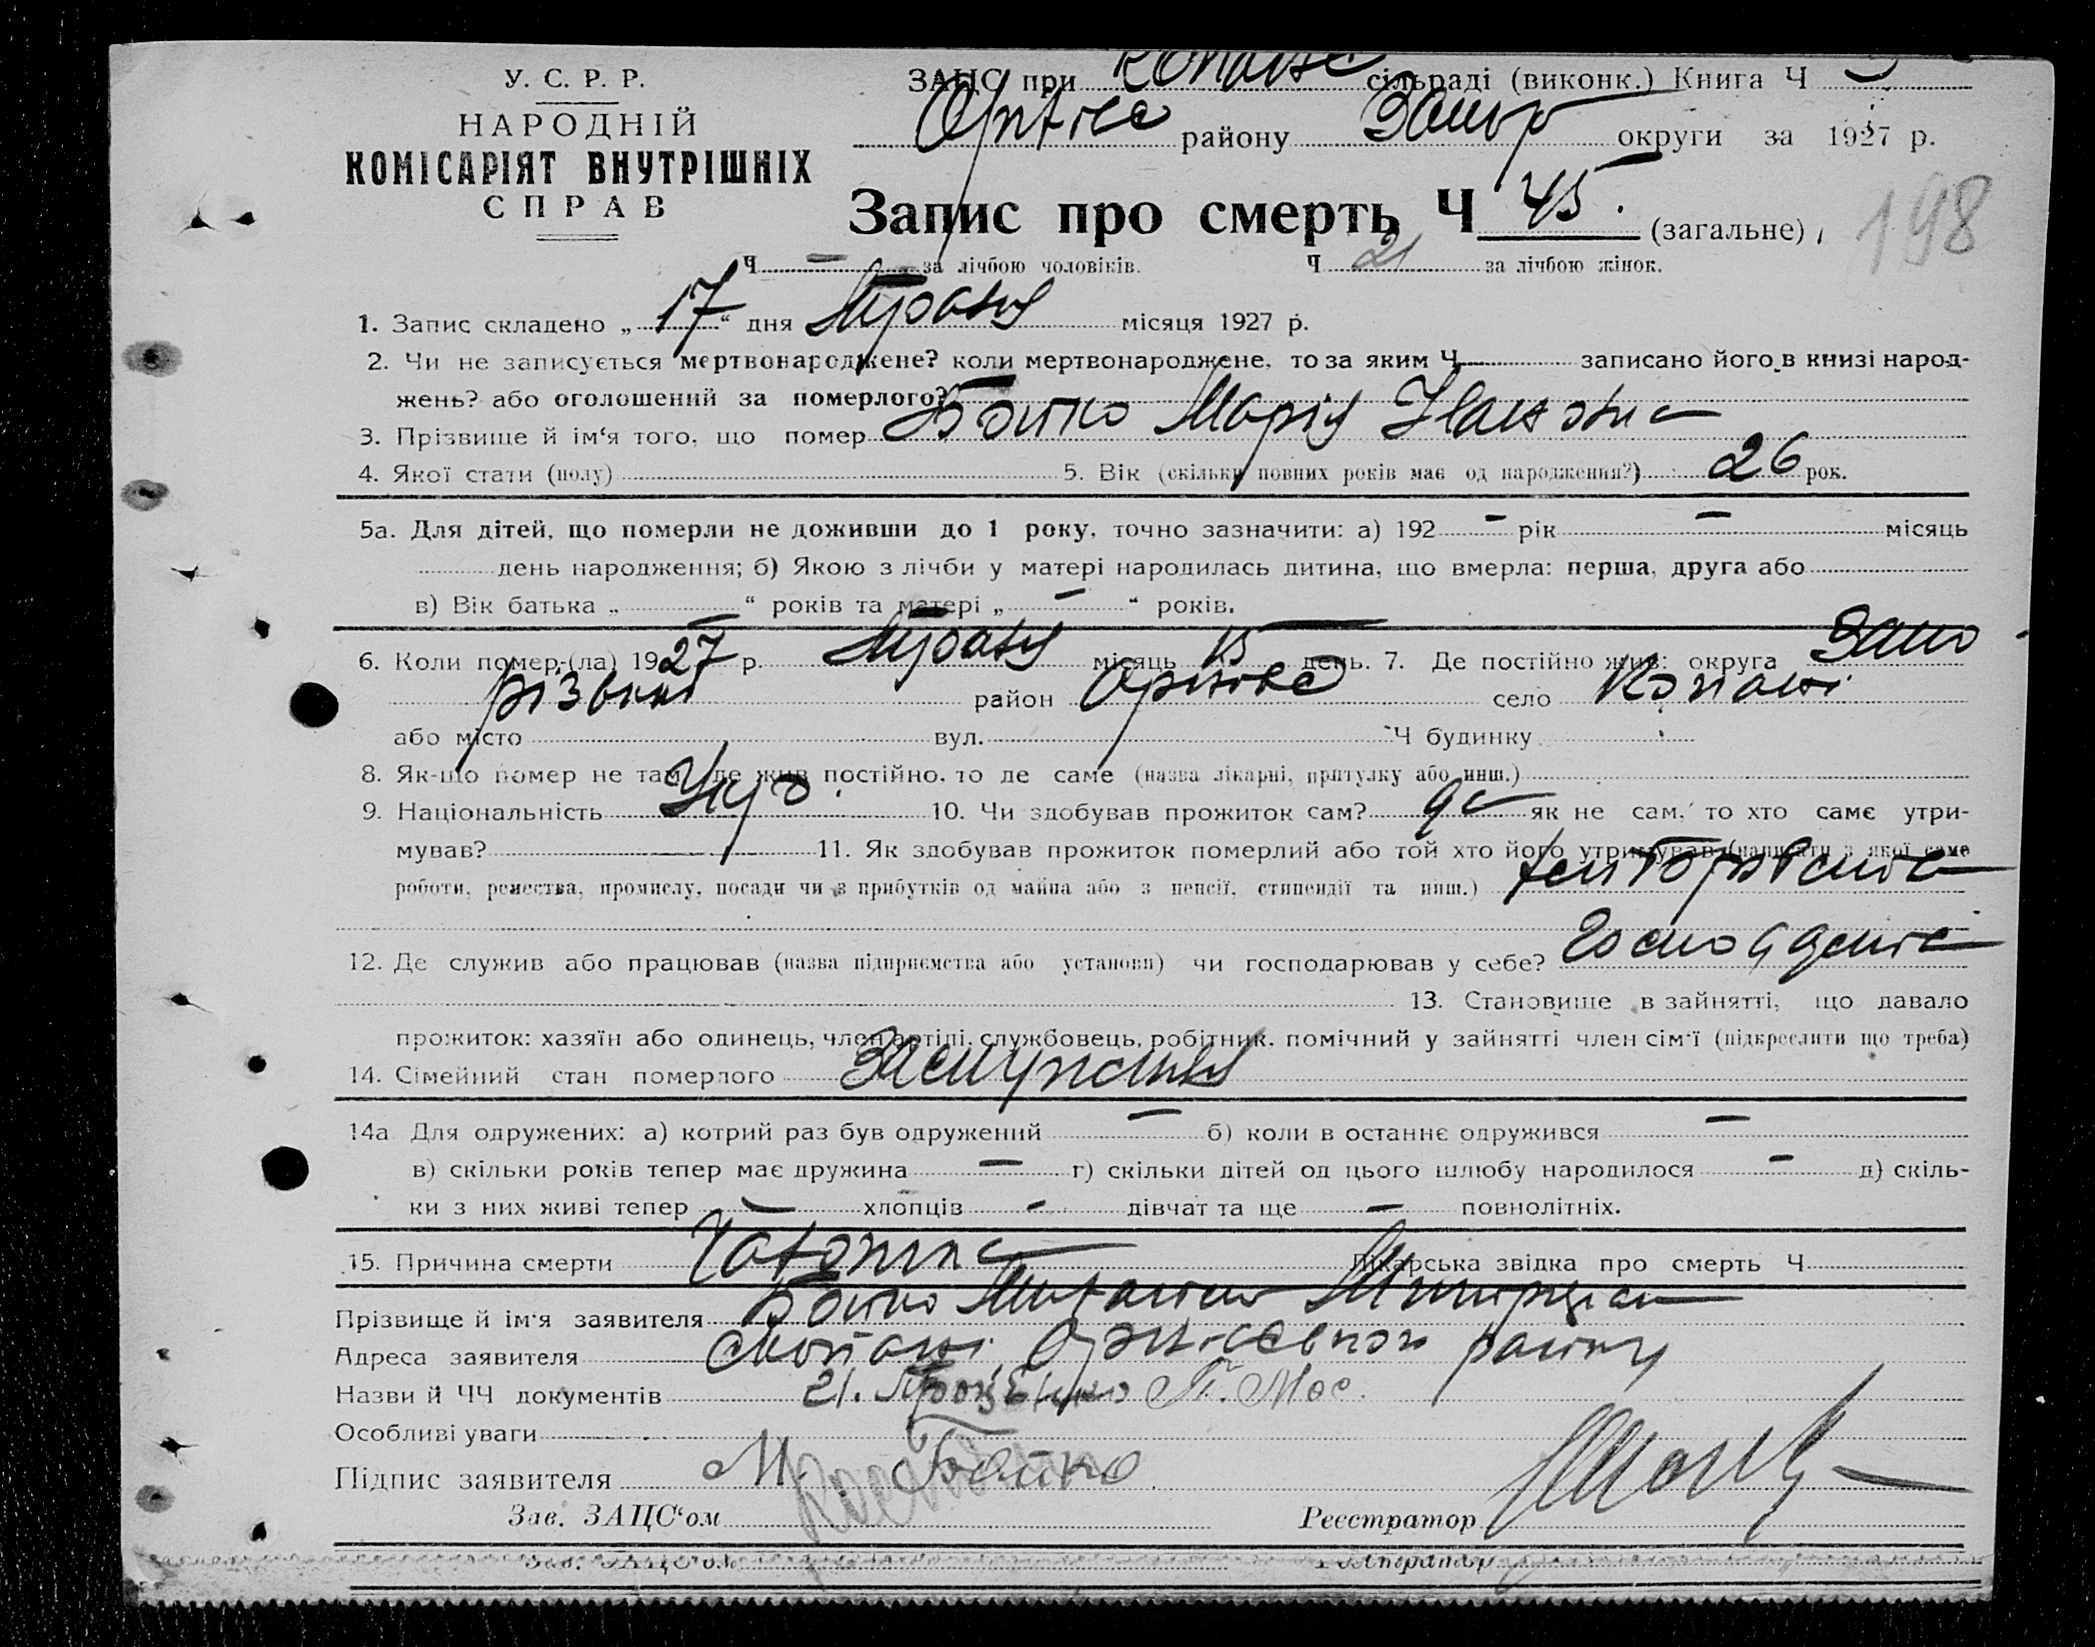 У. С. Р. Р.
НАРОДНІЙ
КОМІСАРІЯТ ВНУТРІШНІХ
СПРАВ
ЗАЦС при сільраді (виконк.) Книга Ч
району Запор округи за 1927 р.
Запис про смерть Ч 45. (загальне) 198
Ч — за лічбою чоловіків. Ч 21 за лічбою жінок.
1. Запис складено „17“ дня Травня місяця 1927 р.
2. Чи не записується мертвонароджене? коли мертвонароджене, то за яким Ч записано його в книзі народ-
жень? або оголошений за померлого? —
3. Прізвище й ім‘я того, що помер Бойко Марія
4. Якої стати (полу) 5. Вік (скільки повних років має од народження?) 26 рок.
5а. Для дітей, що померли не доживши до 1 року, точно зазначити: а) 192 – рік – місяць
день народження; б) Якою з лічби у матері народилась дитина, що вмерла: перша, друга або
в) Вік батька „ “ років та матері „ – “ років.
6. Коли помер-(ла) 1927 р. Травня місяць 15 день. 7. Де постійно жив: округа Запо
різька район Оріхове село Копані
або місто вул. Ч будинку
8. Як-що помер не там, де жив постійно, то де саме (назва лікарні, притулку або инш.)
9. Національність Укр. 10. Чи здобував прожиток сам? як не сам, то хто саме утри-
мував? 11. Як здобував прожиток померлий або той хто його утримував (написати з якої саме
роботи, ремества, промислу, посади чи з прибутків од майна або з пенсії, стипендії та инш.)
12. Де служив або працював (назва підприємства або установи) чи господарював у себе?
13. Становище в зайнятті, що давало
прожиток: хазяїн або одинець, член артілі, службовець, робітник, помічний у зайнятті член сім‘ї (підкреслити що треба)
14. Сімейний стан померлого Замужня
14а Для одружених: а) котрий раз був одружений — б) коли в останнє одружився —
в) скільки років тепер має дружина — г) скільки дітей од цього шлюбу народилося – д) скіль-
ки з них живі тепер — хлопців - дівчат та ще — повнолітніх.
15. Причина смерти Лікарська звідка про смерть Ч
Прізвище й ім‘я заявителя Бойко
Адреса заявителя Копані району
Назви й ЧЧ документів 21.
Особливі уваги
Підпис заявителя М. Бойко
Зав. ЗАЦС‘ом Реєстратор